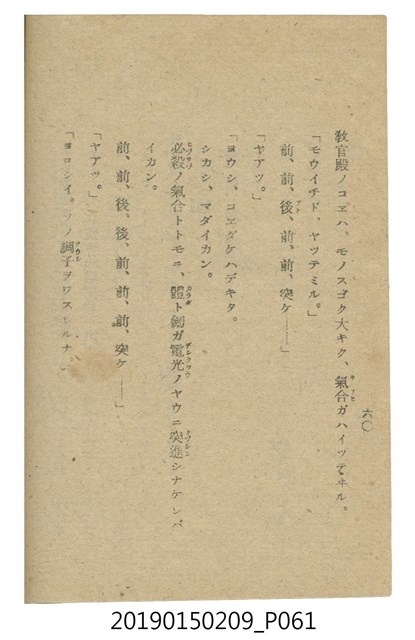 六〇
教官殿ノコヱハ、モノスゴク大キク、氣合ガハイツテヰル。
「モウイチド、ヤツテミル。」
前、前、後、前、前、突ケ――」
「ヤアツ。」
「ヨウシ、コヱダケハデキタ。
シカシ、マダイカン。
必殺ノ氣合トトモニ、體ト劍ガ電光ノヤウニ突進シナケレバ
イカン。
前、前、後、後、前、前、前、突ケ――」
「ヤアツ。」
「ヨロシイ。ソノ調子ヲワスレルナ。」
20190150209_P061